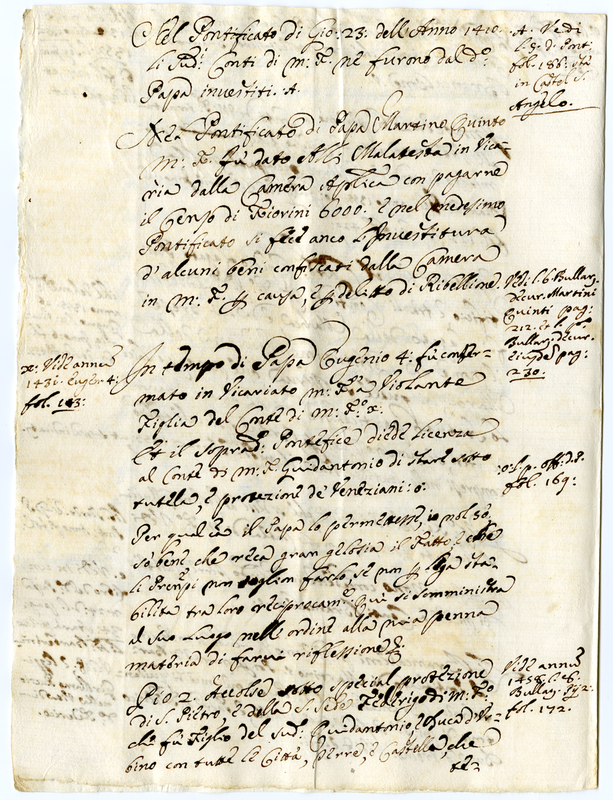 Nel Pontificato di Gio: 23: dell'Anno 1410.
li Sud.i Conti di m: F: ne furono dal d.o
Papa investiti. A.
A. Vedi
l. 9. d. Pont.
fol. 186. Sta
in Castel S.
Angelo.
Nel Pontificato di Papa Martino Quinto
M: F: fù dato alli Malatesta in Vica-
ria dalla Camera Aplica con pagarne
il Censo di Fiorini 6000. e nel medesimo
Pontificato si fece anco l'Investitura
d'alcuni beni confiscati dalla Camera
in M: F: p causa, e delitto di Ribellione.
Vedi l. 6 Bullar.
Martini
Quinti pag:
212. et l. p.o
Bullar.
pag:
230.
In tempo di Papa Eugenio 4. fù confer-
mato in Vicariato m: F: a Violante
Figlia del Conte di m: F.o x.
x: Vide annũ
1431. Eugen: 4.
fol. 143:
Et il soprad.o Pontefice diede licenza
al Conte di m: F. Guidantonio di stare sotto
tutela, e protezione de Veneziani: o.
o: l. p. off. d. d.
fol. 169:
Per qual causa il Papa lo permettesse, io nol sò,
sò bene che reca gran gelosia il Fatto, e che
li Prencipi non voglion farlo, se non p lega sta-
bilita tra loro reciprocam.e Quì si somministra
al suo luogo nelle ordine alla mia penna
materia di farvi riflessione &.
Pio 2. Accolse sotto special protezione
di S. Pietro, e della S. Sede Federigo di m: F.o
che fù Figlio del Sud.o Guidantonio e Duca d'Ur-
bino con tutte le Città, Terre, e Castella, che
te-
Vide annũ
1458. l. 6.
Bullar. Pij 2.
fol. 172.